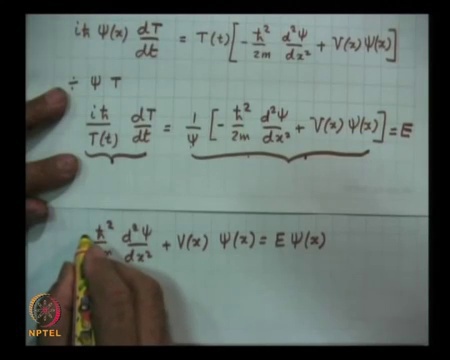 iħ Ψ(x) dT/dt = T(t)[-ħ²/2m d²Ψ/dx² + V(x)Ψ(x)]
÷ Ψ T
iħ/T(t) dT/dt = 1/Ψ [-ħ²/2m d²Ψ/dx² + V(x)Ψ(x)] = E
ħ²/m d²Ψ/dx² + V(x) Ψ(x) = E Ψ(x)
NPTEL